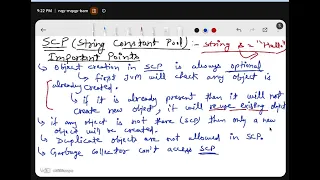 9:22 PM nqy-mqqp-bam
SCP (String Constant Pool) :- String s = "Hello"
Important Points
↳ Object creation in SCP is always optional
↳ first JVM will check any object is
already created.
↳ if it is already present than it will not
create new object, it will reuse existing objct
↳ if any object is not there (SCP) then only a new
object will be created.
↳ Duplicate objects are not allowed in SCP.
↳ Garbage collector can't access SCP